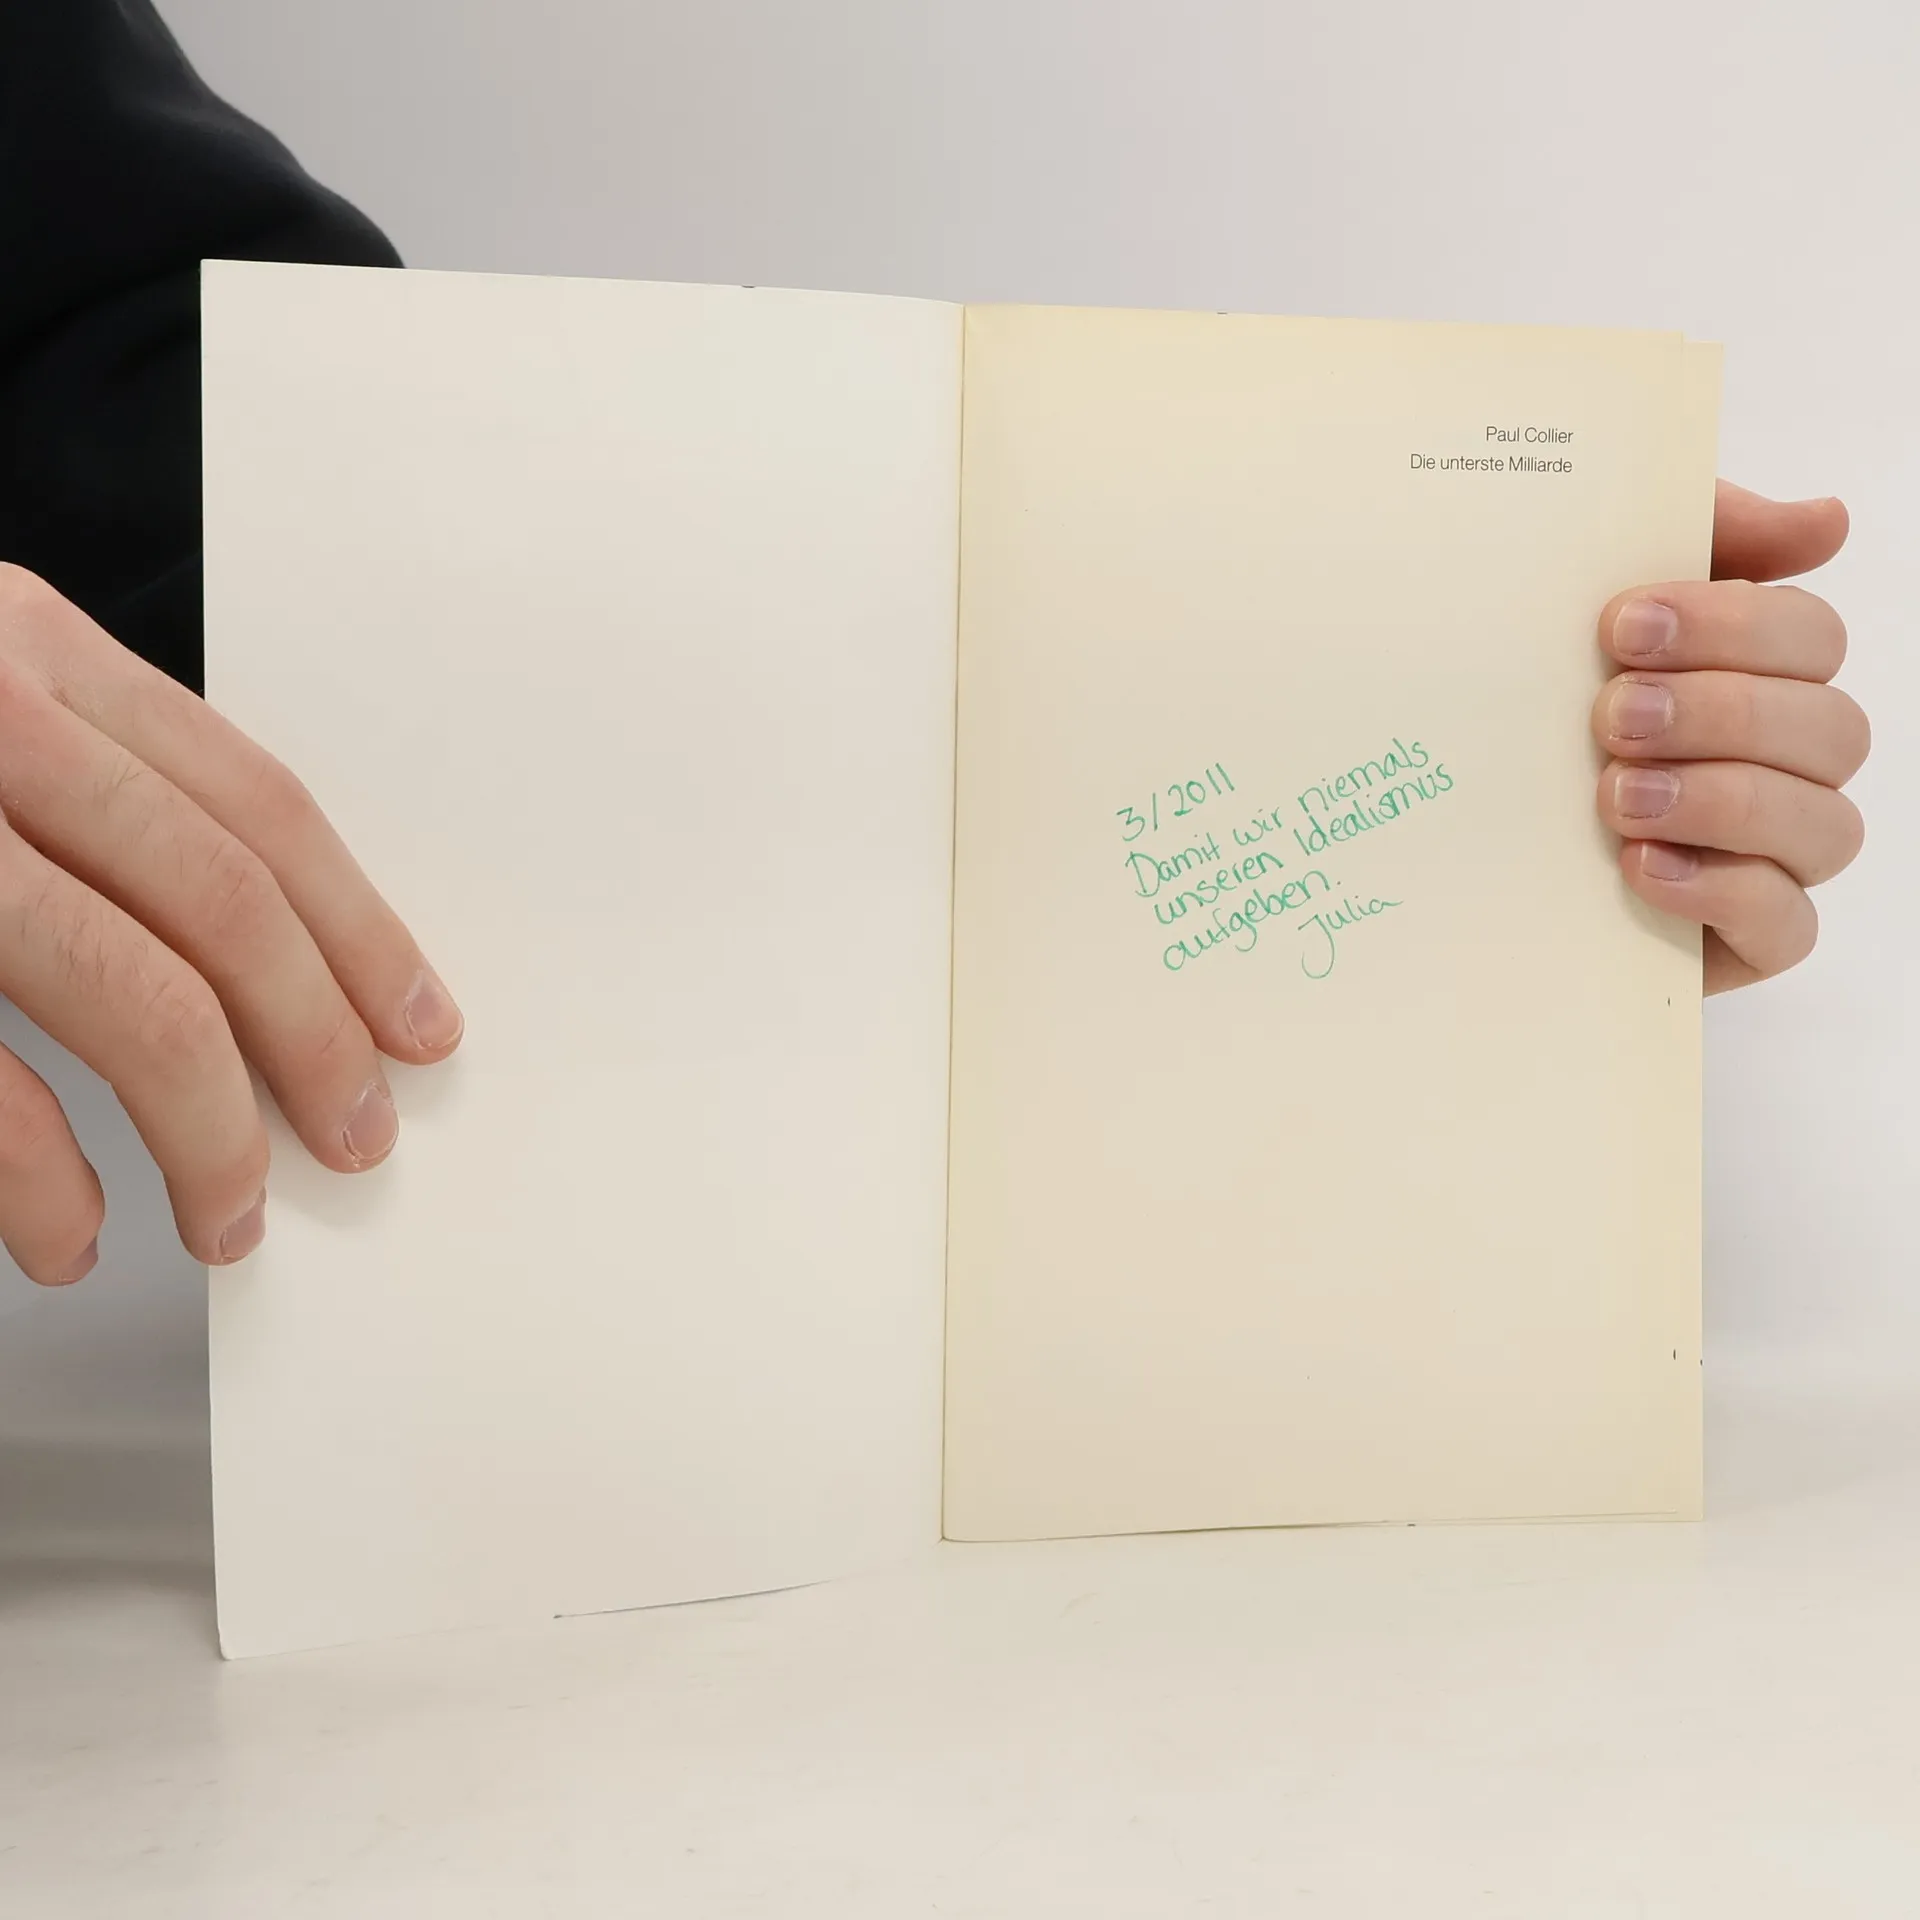 Paul Collier
Die unterste Milliarde
3/2011
Damit wir niemals
unseren Idealismus
aufgeben.
Julia